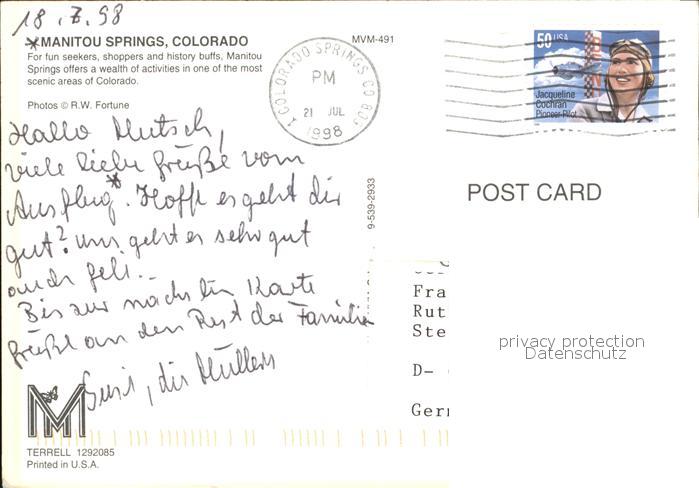 18.7.98
*MANITOU SPRINGS, COLORADO
For fun seekers, shoppers and history buffs, Manitou
Springs offers a wealth of activities in one of the most
scenic areas of Colorado.
Photos © R.W. Fortune
MVM-491
COLORADO SPRINGS CO 809
PM
21 JUL
1998
50 USA
Jacqueline
Cochran
Pioneer Pilot
Hallo Mutsch,
viele liebe Grüße vom
Ausflug*. Hoffe es geht dir
gut? Uns geht es sehr gut
Bis zur nächsten Karte
Grüße an den Rest der Familie
die Müllers
9-539-2933
POST CARD
Fra
Rut
Ste
D-
Germ
privacy protection
Datenschutz
M
TERRELL 1292085
Printed in U.S.A.